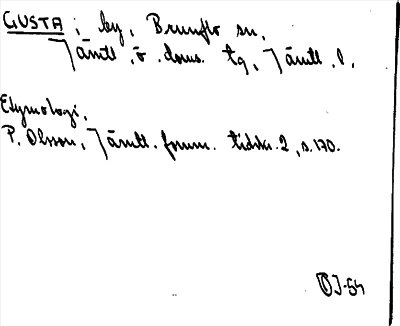 GUSTA ; by, Brunflo sn,
Jämtl. ö. doms. tg, Jämtl. l.
Etymologi,
P. Olsson, Jämtl. fornm. tidskr. 2, s. 170.
OJ-54